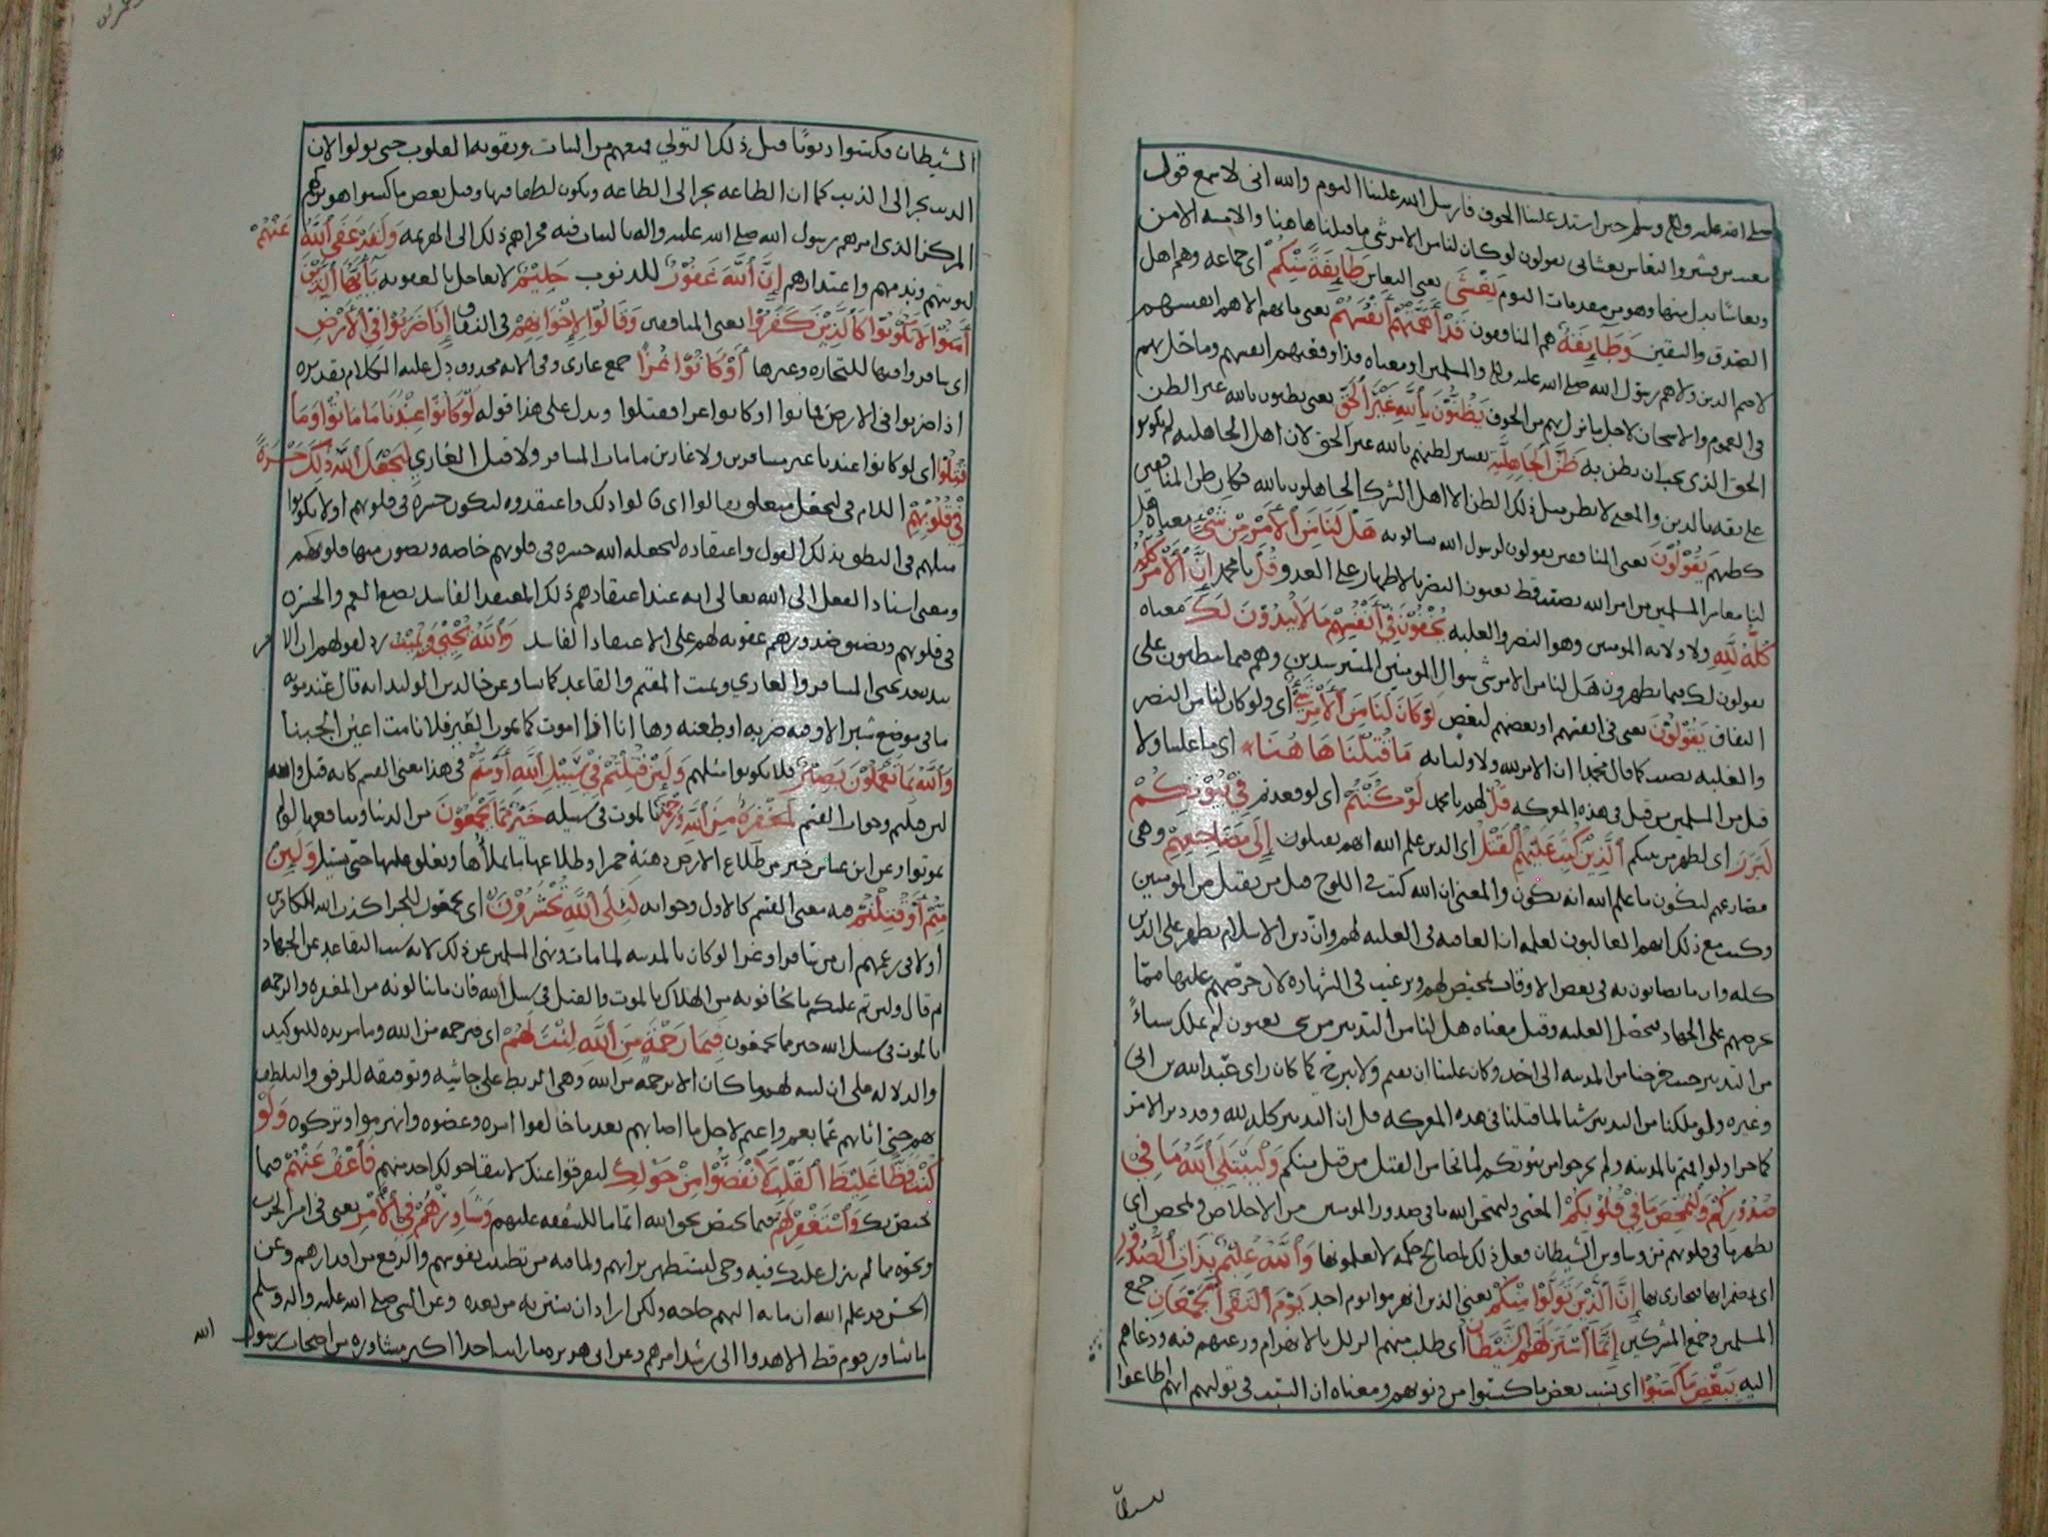 صلى الله عليه واله وسلم حين اشتد علينا الخوف فارسل الله علينا النوم والله انى لاسمع قول
معتب بن قشير والنعاس يغشانى يقولون لو كان لنا من الامر شى ما قتلنا هاهنا والامنه الامن
ونعاسا بدل منها وهو من مقدمات النوم يَغْشَى يعنى النعاس طَآئِفَةً مِنْكُمْ اى جماعه وهم اهل
الصدق واليقين وَطَآئِفَةٌ هم المنافقون قَدْ أَهَمَّتْهُمْ أَنْفُسُهُمْ يعنى ما بهم الا هم انفسهم
لا هم الدين ولا هم رسول الله صلى الله عليه واله والمسلمين او معناه قد اوقعهم انفسهم وما حل بهم
فى الغموم والاشجان لاجل ما نزل بهم من الخوف يَظُنُّونَ بِاللَّهِ غَيْرَ الْحَقِّ يعنى يظنون بالله غير الظن
الحق الذى يجب ان يظن به ظَنَّ الْجَاهِلِيَّةِ تفسير لظنهم بالله غير الحق لان اهل الجاهليه لم يكونوا
على ثقه بالدين والمعنى لا يظن مثل ذلك الظن الا اهل الشرك الجاهلون بالله فكان ظن المنافقين
كظنهم يَقُوْلُوْنَ يعنى المنافقين يقولون لرسول الله يسالونه هَلْ لَنَا مِنَ الْأَمْرِ مِنْ شَيْءٍ معناه هل
لنا معاشر المسلمين من امر الله نصيب قط يعنون النصر والاظهار على العدو قُلْ يا محمد إِنَّ الْأَمْرَ كُلَّهُ
كُلَّهُ لِلَّهِ ولاوليائه المومنين وهو النصر والغلبه يُخْفُوْنَ فِيْ أَنْفُسِهِمْ مَا لَا يُبْدُوْنَ لَكَ معناه
يقولون لك فيما يظهرون هل لنا من الامر شى سوال المومنين المسترشدين وهم فيما يبطنون على
النفاق يَقُوْلُوْنَ يعنى فى انفسهم او بعضهم لبعض لَوْ كَانَ لَنَا مِنَ الْأَمْرِ شَيْءٌ اى ولو كان لنا من النصر
والغلبه نصيب كما قال محمد ان الامر لله ولاوليائه مَا قُتِلْنَا هَا هُنَا اى ما غلبنا ولا
قتل من المسلمين من قتل فى هذه المعركه قُلْ لهم يا محمد لَوْ كُنْتُمْ اى لو قعدتم فِيْ بُيُوْتِكُمْ
لَبَرَزَ اى لظهر من بينكم الَّذِيْنَ كُتِبَ عَلَيْهِمُ الْقَتْلُ اى الذين علم الله انهم يقتلون إِلَى مَضَاجِعِهِمْ وهى
مصارعهم ليكون ما علم الله انه يكون والمعنى ان الله كتب فى اللوح قتل من يقتل من المومنين
وكتب مع ذلك انهم الغالبون لعلمه ان العاقبه فى الغلبه لهم وان دين الاسلام يظهر على الدين
كله وان ما يصابون به فى بعض الاوقات تمحيص لهم وترغيب فى الشهاده لان حرصهم عليها مما
يحرصهم على الجهاد فتحصل الغلبه وقيل معناه هل لنا من التدبير من شى يعنون لم نملك شيأ
من التدبير حيث خرجنا من المدينه الى احد وكان علينا ان نقيم ولا نبرح كما كان راى عبد الله بن ابى
وغيره ولو ملكنا من التدبير شيا لما قتلنا فى هذه المعركه قل ان التدبير كله لله وقد دبر الامر
كما جرا ولو اقمتم بالمدينه ولم تخرجوا من بيوتكم لما نجا من القتل من قتل منكم وَلِيَبْتَلِيَ اللَّهُ مَا فِيْ
صُدُوْرِكُمْ وَلِيُمَحِّصَ مَا فِيْ قُلُوْبِكُمْ المعنى وليمتحن الله ما فى صدور المومنين من الاخلاص وليمحص اى
يطهر ما فى قلوبهم من وساوس الشيطان فعل ذلك لمصالح حكمه لا تعلمونها وَاللَّهُ عَلِيْمٌ بِذَاتِ الصُّدُوْرِ
اى بضمائرها فيجازى بها إِنَّ الَّذِيْنَ تَوَلَّوْا مِنْكُمْ يعنى الذين انهزموا يوم احد يَوْمَ الْتَقَى الْجَمْعَانِ جمع
المسلمين وجمع المشركين إِنَّمَا اسْتَزَلَّهُمُ الشَّيْطَانُ اى طلب منهم الزلل بالانهزام ورغبهم فيه ودعاهم
اليه بِبَعْضِ مَا كَسَبُوْا اى بسبب بعض ما كسبوا من ذنوبهم ومعناه ان السبب فى توليهم انهم اطاعوا
الشيطان فكسبوا ذنوبًا قبل ذلك التولي فمنعهم من الثبات وتقويه القلوب حتى تولوا لان
الذنب يجر الى الذنب كما ان الطاعه تجر الى الطاعه وتكون لطفا فيها وقيل بعض ما كسبوا هو تركهم
المركز الذى امرهم رسول الله صلى الله عليه واله بالثبات فيه فجراهم ذلك الى الهزيمه وَلَقَدْ عَفَى اللَّهُ عَنْهُمْ
لتوبتهم وندمهم واعتذارهم إِنَّ اللَّهَ غَفُوْرٌ للذنوب حَلِيْمٌ لا يعاجل بالعقوبه يَا أَيُّهَا الَّذِيْنَ
آمَنُوْا لَا تَكُوْنُوْا كَالَّذِيْنَ كَفَرُوْا يعنى المنافقين وَقَالُوْا لِإِخْوَانِهِمْ فى النفاق إِذَا ضَرَبُوْا فِيْ الْأَرْضِ
اى سافروا فيها للتجاره وغيرها أَوْ كَانُوْا غُزًّا جمع غازى وفى الآيه محذوف دل عليه الكلام تقديره
اذا ضربوا فى الارض فماتوا او كانوا غزا فقتلوا ويدل على هذا قوله لَوْ كَانُوْا عِنْدَنَا مَا مَاتُوْا وَمَا
قُتِلُوْا اى لو كانوا عندنا غير مسافرين ولا غازين ما مات المسافر ولا قتل الغازي لِيَجْعَلَ اللَّهُ ذَلِكَ حَسْرَةً
فِيْ قُلُوْبِهِمْ اللام فى ليجعل متعلق بقالوا اى قالوا ذلك واعتقدوه ليكون حسره فى قلوبهم او لا تكونوا
مثلهم فى النطق بذلك القول واعتقاده ليجعله الله حسره فى قلوبهم خاصه ويصون منها قلوبكم
ومعنى اسناد الفعل الى الله تعالى انه عند اعتقادهم ذلك المعتقد الفاسد يضع الغم والحسره
فى قلوبهم ويضيق صدورهم عقوبه لهم على الاعتقاد الفاسد وَاللَّهُ يُحْيِيْ وَيُمِيْتُ رد لقولهم ان الامر
بيده قد يحيى المسافر والغازي ويميت المقيم والقاعد كما شا وعن خالد بن الوليد انه قال عند موته
ما فى موضع شبر الا وفيه ضربه او طعنه وها انا اذا اموت كما يموت العير فلا نامت اعين الجبنا
وَاللَّهُ بِمَا تَعْمَلُوْنَ بَصِيْرٌ فلا تكونوا مثلهم وَلَئِنْ قُتِلْتُمْ فِيْ سَبِيْلِ اللَّهِ أَوْ مُتُّمْ فى هذا معنى القسم كانه قيل والله
لئن قتلتم وجواب القسم لَمَغْفِرَةٌ مِنَ اللَّهِ وَرَحْمَةٌ بالموت فى سبيله خَيْرٌ مِمَّا تَجْمَعُوْنَ من الدنيا ومنافعها لو لم
تموتوا وعن ابن عباس خير من طلاع الارض ذهبة حمرا وطلاعها ما يملأها ويغلو عليها حتى يسيل وَلَئِنْ
مُتُّمْ أَوْ قُتِلْتُمْ فيه معنى القسم كالاول وجوابه لَإِلَى اللَّهِ تُحْشَرُوْنَ اى تجمعون للجزا كذب الله الكافرين
اولا فى زعمهم ان من سافر او غزا لو كان بالمدينه لما مات ونهى المسلمين عن ذلك لانه سبب التقاعد عن الجهاد
ثم قال ولئن تم عليكم ما تخافونه من الهلاك بالموت والقتل فى سبيل الله فان ما تنالونه من المغفره والرحمه
بالموت فى سبيل الله خير مما تجمعون فَبِمَا رَحْمَةٍ مِنَ اللَّهِ لِنْتَ لَهُمْ اى فبرحمه من الله وما مزيده للتوكيد
والدلاله على ان لينه لهم ما كان الا برحمه من الله وهى الربط على جاشه وتوفيقه للرفق والتلطف
بهم حتى اثابهم غما بغم واغتم لاجل ما اصابهم بعد ما خالفوا امره وعصوه وانهزموا وتركوه وَلَوْ
كُنْتَ فَظًّا غَلِيْظَ الْقَلْبِ لَانْفَضُّوْا مِنْ حَوْلِكَ لتفرقوا عنك لا يبقا حولك احد منهم فَاعْفُ عَنْهُمْ فيما
يختص بك وَاسْتَغْفِرْ لَهُمْ فيما يختص بحق الله اتماما للشفقه عليهم وَشَاوِرْهُمْ فِيْ الْأَمْرِ يعنى فى امر الحرب
ونحوه مما لم ينزل عليك فيه وحى لتستظهر برايهم ولما فيه من تطييب نفوسهم والرفع من اقدارهم وعن
الحسن قد علم الله ان ما به اليهم حاجه ولكن اراد ان يستن به من بعده وعن النبى صلى الله عليه واله وسلم
ما تشاور قوم قط الا هدوا الى رشد امرهم وعن ابى هريره ما رايت احدا اكثر مشاوره من اصحاب رسول
الله